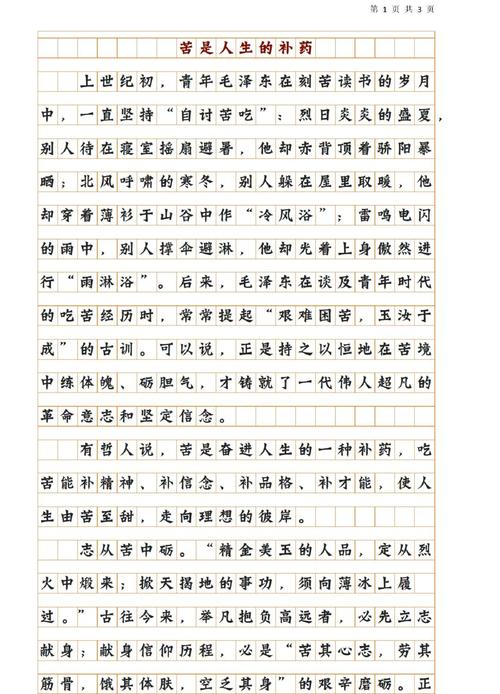 第 1 页 共 3 页
苦是人生的补药
上世纪初，青年毛泽东在刻苦读书的岁月
中，一直坚持“自讨苦吃”：烈日炎炎的盛夏，
别人待在寝室摇扇避暑，他却赤背顶着骄阳暴
晒；北风呼啸的寒冬，别人躲在屋里取暖，他
却穿着薄衫于山谷中作“冷风浴”；雷鸣电闪
的雨中，别人撑伞避淋，他却光着上身傲然进
行“雨淋浴”。后来，毛泽东在谈及青年时代
的吃苦经历时，常常提起“艰难困苦，玉汝于
成”的古训。可以说，正是持之以恒地在苦境
中练体魄、砺胆气，才铸就了一代伟人超凡的
革命意志和坚定信念。
有哲人说，苦是奋进人生的一种补药，吃
苦能补精神、补信念、补品格、补才能，使人
生由苦至甜，走向理想的彼岸。
志从苦中砺。“精金美玉的人品，定从烈
火中煅来；掀天揭地的事功，须向薄冰上履
过。”古往今来，举凡抱负高远者，必先立志
献身；献身信仰历程，必是“苦其心志，劳其
筋骨，饿其体肤，空乏其身”的艰辛磨砺。正